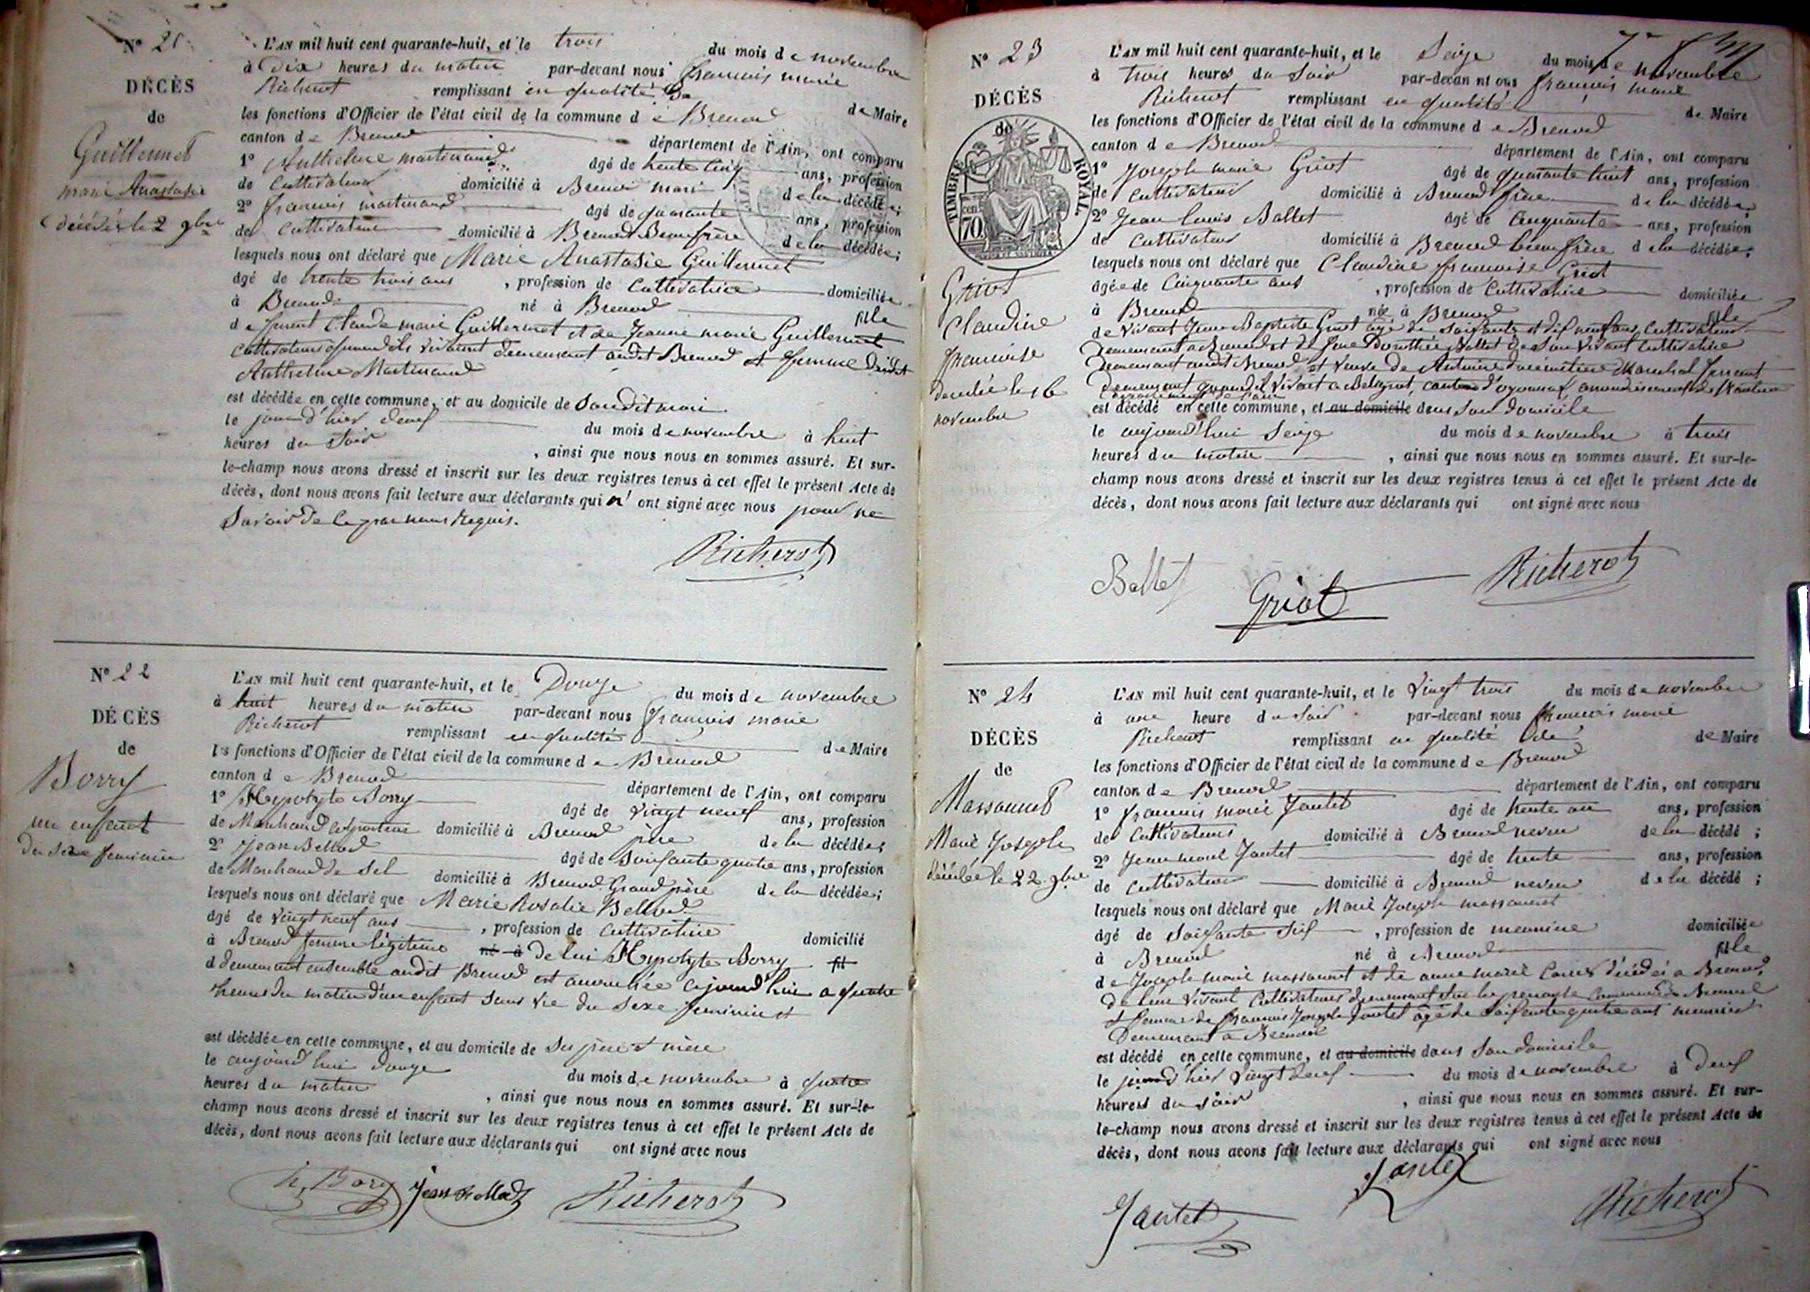 Nº 21
DÉCÈS
de
Guillermet
marie Anastasie
décédée le 2 9bre
L'AN mil huit cent quarante-huit, et le trois du mois de novembre
à Dix heures du matin par-devant nous françois marie
Richerot remplissant en qualité de de Maire
les fonctions d'Officier de l'état civil de la commune de Brenod
canton de Brenod département de l'Ain, ont comparu
1º Anthelme martinand âgé de trente cinq ans, profession
de Cultivateur domicilié à Brenod mari de la décédée;
2º françois martinand âgé de quarante ans, profession
de Cultivateur domicilié à Brenod Beaufrère de la décédée;
lesquels nous ont déclaré que Marie Anastasie Guillermet
âgé de trente trois ans , profession de Cultivatrice domiciliée
à Brenod né à Brenod fille
de Claude marie Guillermet et de Jeanne marie Guillermet
Cultivateurs quand ils vivaient demeurant audit Brenod et femme dudit
Anthelme Martinand
est décédée en cette commune, et au domicile de Son dit mari
le jour d'hier deux du mois de novembre à huit
heures du Soir , ainsi que nous nous en sommes assuré. Et sur-
le-champ nous avons dressé et inscrit sur les deux registres tenus à cet effet le présent Acte de
décès, dont nous avons fait lecture aux déclarants qui n' ont signé avec nous pour ne
Savoir de ce par nous requis.
Richerot
Nº 22
DÉCÈS
de
Borry
un enfant
du sexe féminin
L'AN mil huit cent quarante-huit, et le Douze du mois de novembre
à huit heures du matin par-devant nous françois marie
Richerot remplissant en qualité de Maire
les fonctions d'Officier de l'état civil de la commune de Brenod
canton de Brenod département de l'Ain, ont comparu
1º Hypolyte Borry âgé de vingt neuf ans, profession
de Marchand colporteur domicilié à Brenod père de la décédée;
2º Jean Bellod âgé de Soixante quatre ans, profession
de Marchand de Sel domicilié à Brenod Grand père de la décédée;
lesquels nous ont déclaré que Marie Rosalie Bellod
âgé de vingt neuf ans , profession de cultivatrice
à Brenod femme légitime né à de lui Hypolyte Borry domicilié fil
d demeurant ensemble audit Brenod est accouchée aujourd'hui a quatre
heures du matin d'un enfant sans vie du sexe féminin et
est décédée en cette commune, et au domicile de Ses père et mère
le aujourd'hui douze du mois de novembre à quatre
heures du matin , ainsi que nous nous en sommes assuré. Et sur-le-
champ nous avons dressé et inscrit sur les deux registres tenus à cet effet le présent Acte de
décès, dont nous avons fait lecture aux déclarants qui ont signé avec nous
h. Bory Jean Bellod Richerot
Nº 23
DÉCÈS
de
TIMBRE ROYAL
70
Griot
Claudine
françoise
décédée le 16
novembre
L'AN mil huit cent quarante-huit, et le Seize du mois de novembre
à trois heures du Soir par-devant nous françois marie
Richerot remplissant en qualité de Maire
les fonctions d'Officier de l'état civil de la commune de Brenod
canton de Brenod département de l'Ain, ont comparu
1º Joseph marie Griot âgé de quarante huit ans, profession
de cultivateur domicilié à Brenod frère de la décédée;
2º Jean Louis Ballet âgé de Cinquante ans, profession
de Cultivateur domicilié à Brenod beau frère de la décédée;
lesquels nous ont déclaré que Claudine françoise Griot
âgée de Cinquante ans , profession de Cultivatrice domiciliée
à Brenod née à Brenod fille
de vivant Jean Baptiste Griot âgé de Soixante et dix neuf ans, cultivateur
demeurant a Brenod et de Dorothée Ballet de Son vivant cultivatrice
demeurant audit Brenod et veuve de Antoine Marechal
demeurant quand il vivait a Belignat, canton d'oyonnax, arrondissement de Nantua
est décédé en cette commune, et au domicile dans Son domicile
le aujourd'hui Seize du mois de novembre à trois
heures du matin , ainsi que nous nous en sommes assuré. Et sur-le-
champ nous avons dressé et inscrit sur les deux registres tenus à cet effet le présent Acte de
décès, dont nous avons fait lecture aux déclarants qui ont signé avec nous
Ballet Griot Richerot
Nº 24
DÉCÈS
de
Massonnet
Marie Josephe
décédée le 22 9bre
L'AN mil huit cent quarante-huit, et le vingt trois du mois de novembre
à une heure du Soir par-devant nous françois marie
Richerot remplissant en qualité de de Maire
les fonctions d'Officier de l'état civil de la commune de Brenod
canton de Brenod département de l'Ain, ont comparu
1º françois marie Jantet âgé de trente un ans, profession
de Cultivateur domicilié à Brenod neveu de la décédé ;
2º Jean marie Jantet âgé de trente ans, profession
de cultivateur domicilié à Brenod neveu de la décédé ;
lesquels nous ont déclaré que Marie Josephe massonnet
âgé de Soixante Six , profession de domiciliée
à Brenod né à Brenod fille
de Joseph marie massonnet et de anne marie décédés a Brenod,
de leur vivant Cultivateurs demeurant Brenod
et femme de françois Joseph Jantet âgé de Soixante quatre ans
Demeurant a Brenod
est décédé en cette commune, et au domicile dans Son domicile
le jour d'hier vingt deux du mois de novembre à Deux
heures du Soir , ainsi que nous nous en sommes assuré. Et sur-
le-champ nous avons dressé et inscrit sur les deux registres tenus à cet effet le présent Acte de
décès, dont nous avons fait lecture aux déclarants qui ont signé avec nous
Jantet Jantet Richerot